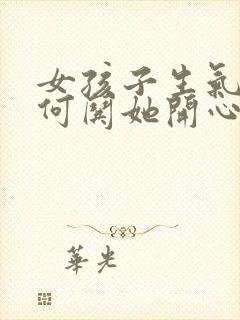 女孩子生氣
何関她開心
華光